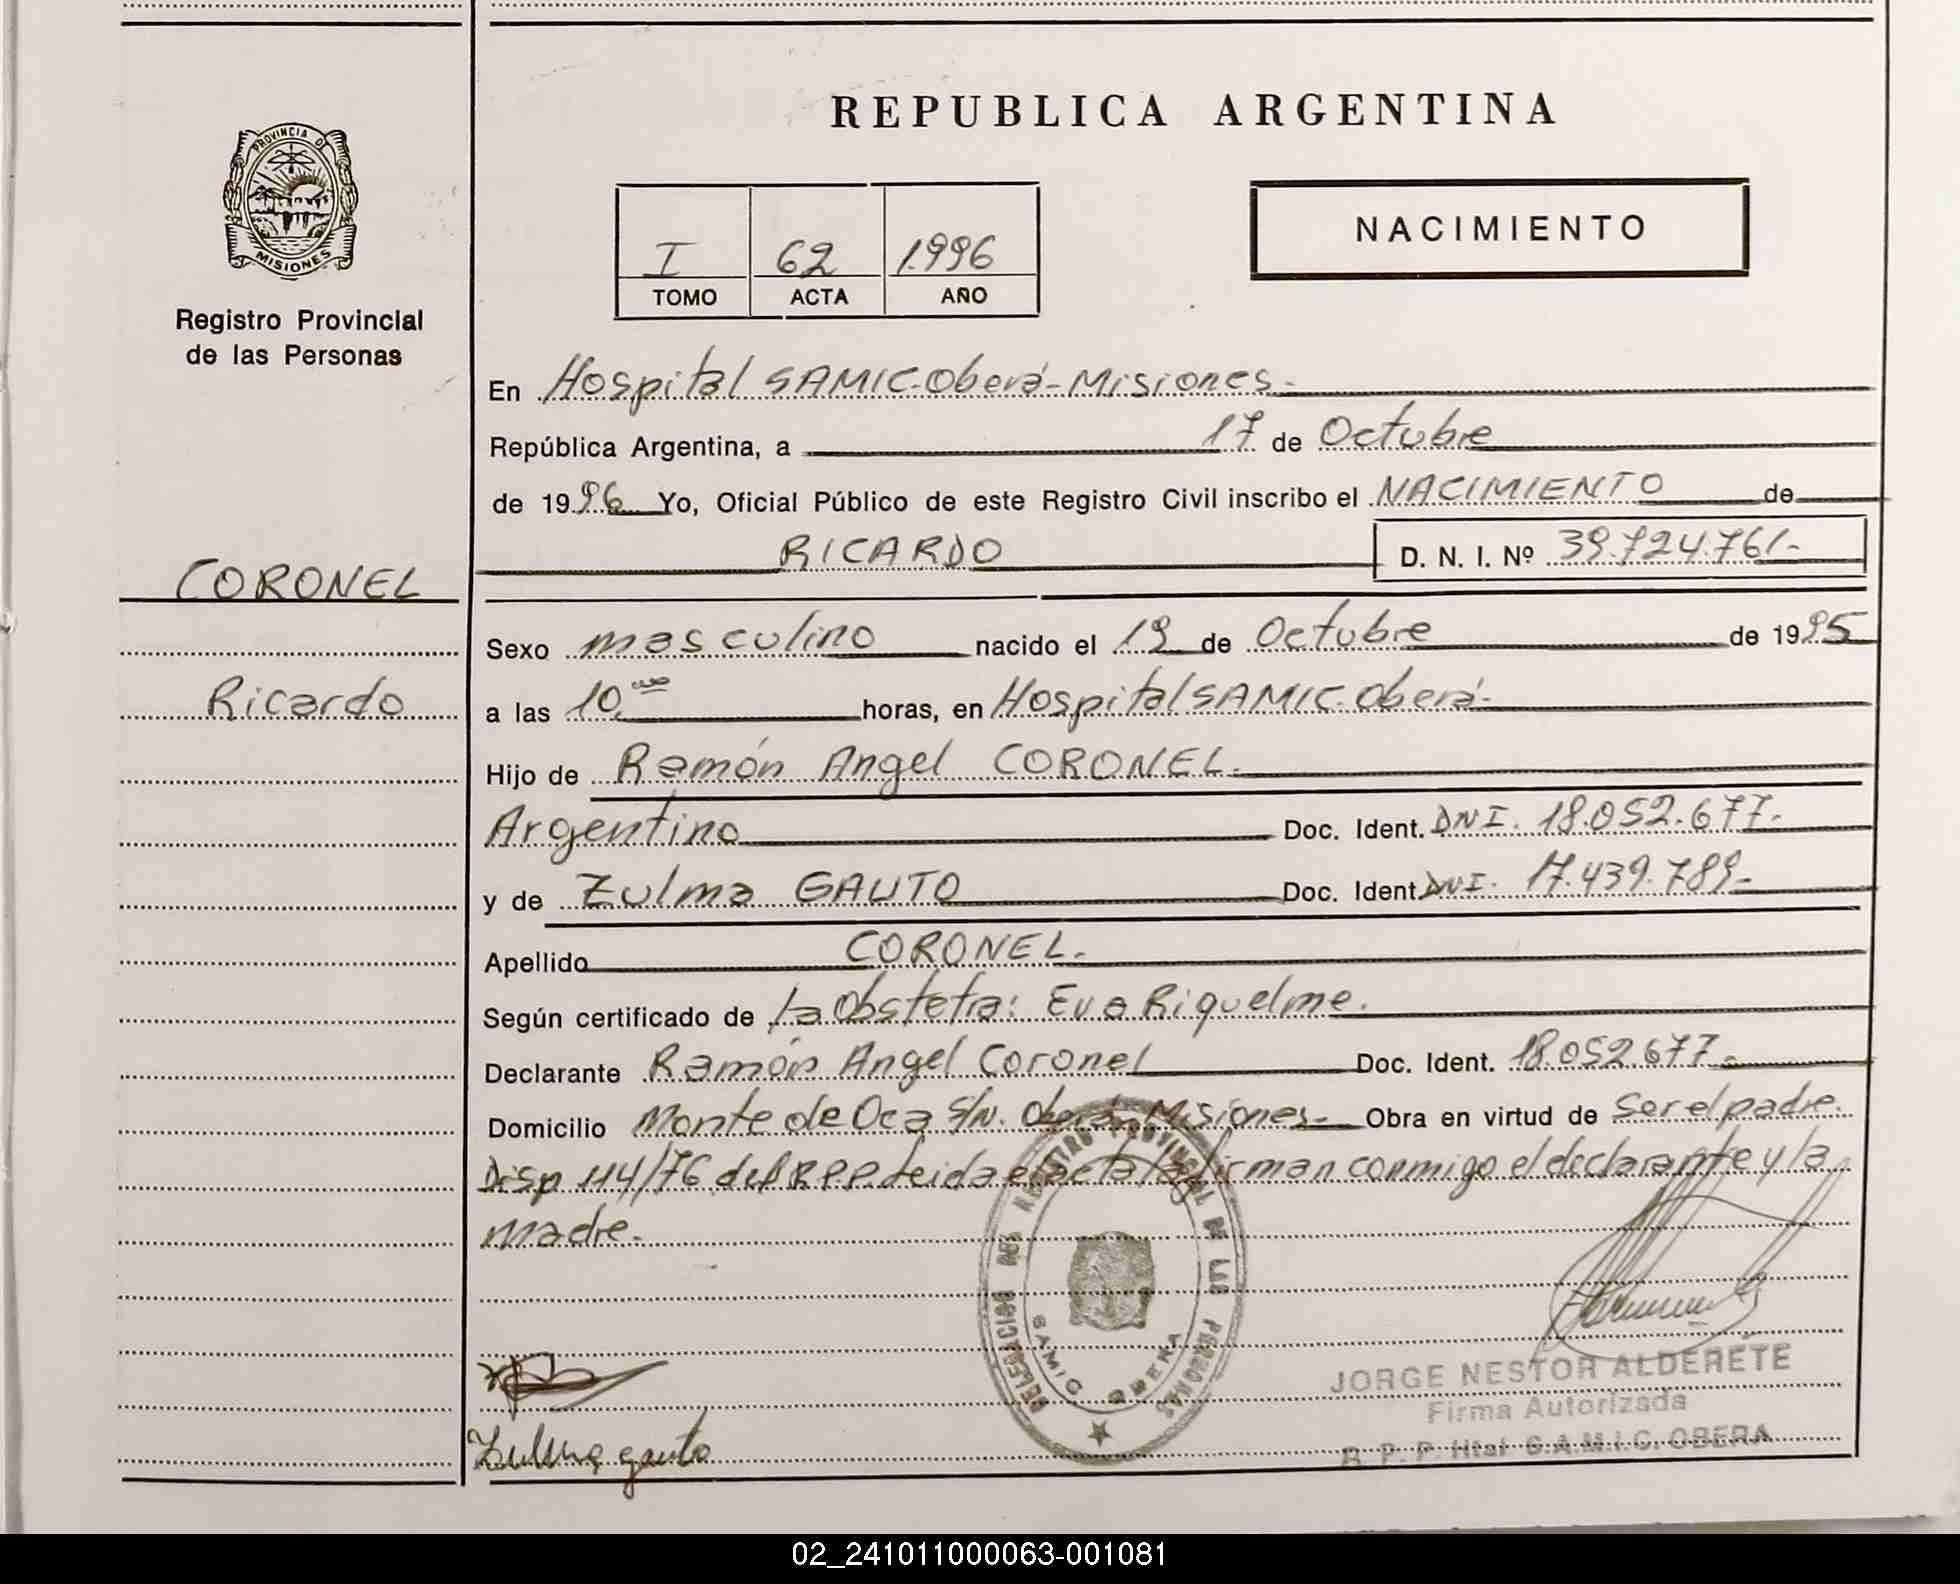 REPUBLICA ARGENTINA
PROVINCIA D
MISIONES
Registro Provincial
de las Personas
I 62 1996
TOMO ACTA AÑO
NACIMIENTO
En Hospital SAMIC-Oberá-Misiones-
República Argentina, a 17 de Octubre
de 1996 Yo, Oficial Público de este Registro Civil inscribo el NACIMIENTO de
RICARDO D. N. I. Nº 39.724.761-
CORONEL
Ricardo
Sexo masculino nacido el 19 de Octubre de 1995
a las 10 horas, en Hospital SAMIC-Oberá-
Hijo de Ramón Angel CORONEL-
Argentino Doc. Ident. DNI. 18.052.677-
y de Zulma GAUTO Doc. Ident. DNI. 17.439.789-
Apellido CORONEL-
Según certificado de la Obstetra: Eva Riquelme.
Declarante Ramón Angel Coronel Doc. Ident. 18.052.677-
Domicilio Monte de Oca S/N. Oberá-Misiones- Obra en virtud de Ser el padre.
Disp 114/76 del R.P.P. Leida el acta la firman conmigo el declarante y la
madre.
DELEGACION DEL REGISTRO PROVINCIAL DE LAS PERSONAS
SAMIC OBERA
JORGE NESTOR ALDERETE
Firma Autorizada
R. P. P. Htal S.A.M.I.C. OBERA
Zulma gauto
02_241011000063-001081